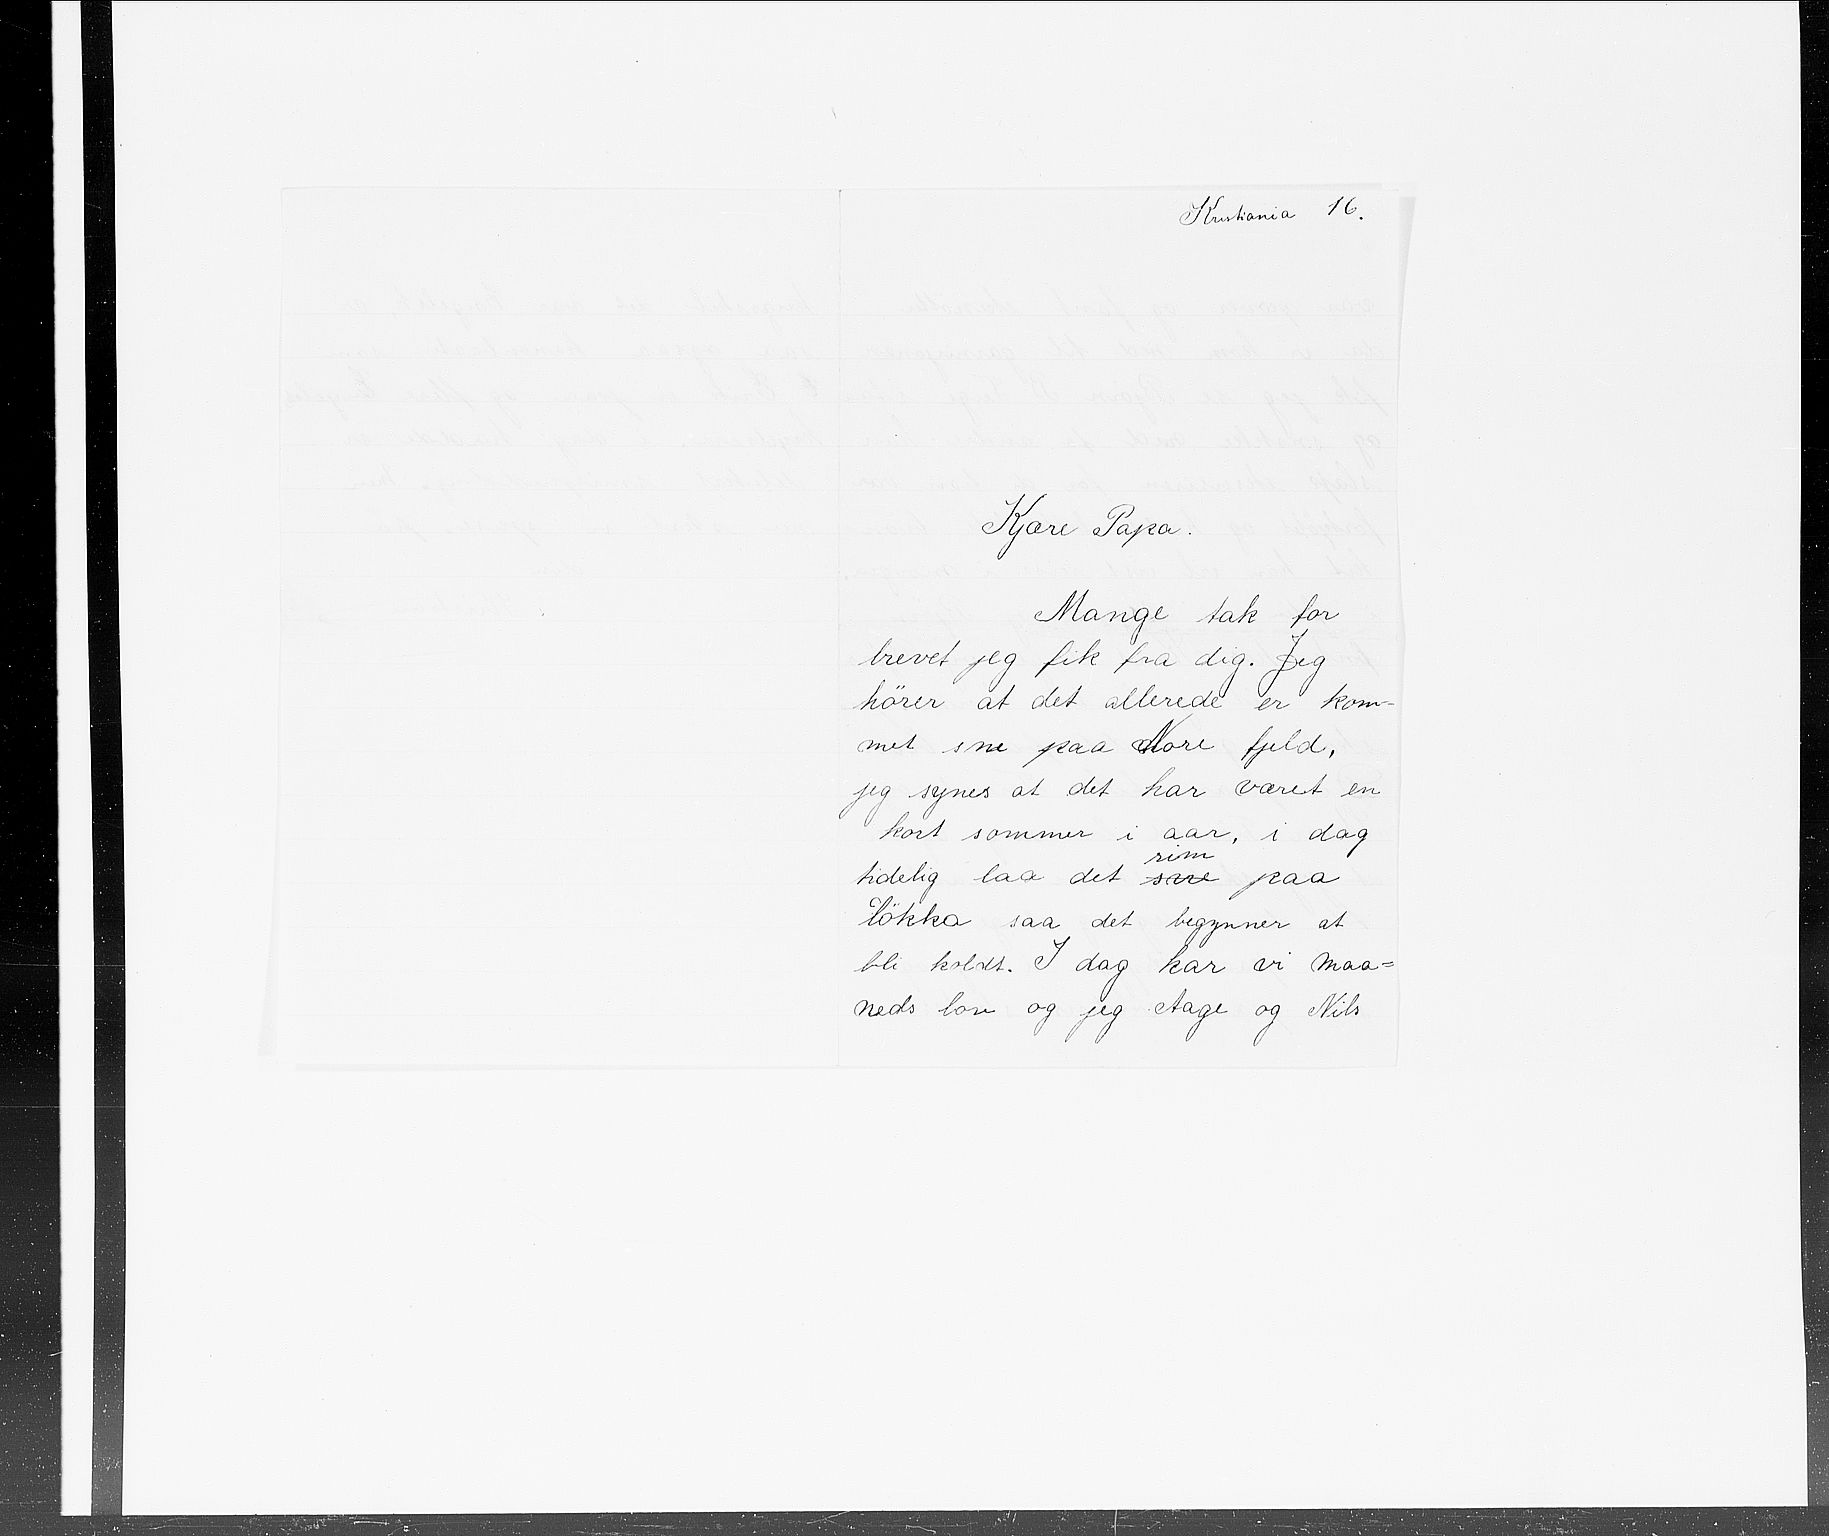 Kristiania 16.
Kjære Papa.
Mange tak for
brevet jeg fik fra dig. Jeg
hörer at det allerede er kom-
met sne paa Nore fjeld,
jeg synes at det har været en
kort sommer i aar, i dag
rim
tidelig laa det sne paa
Lökka saa det begynner at
bli koldt. I dag har vi maa=
neds lov og jeg Aage og Nils